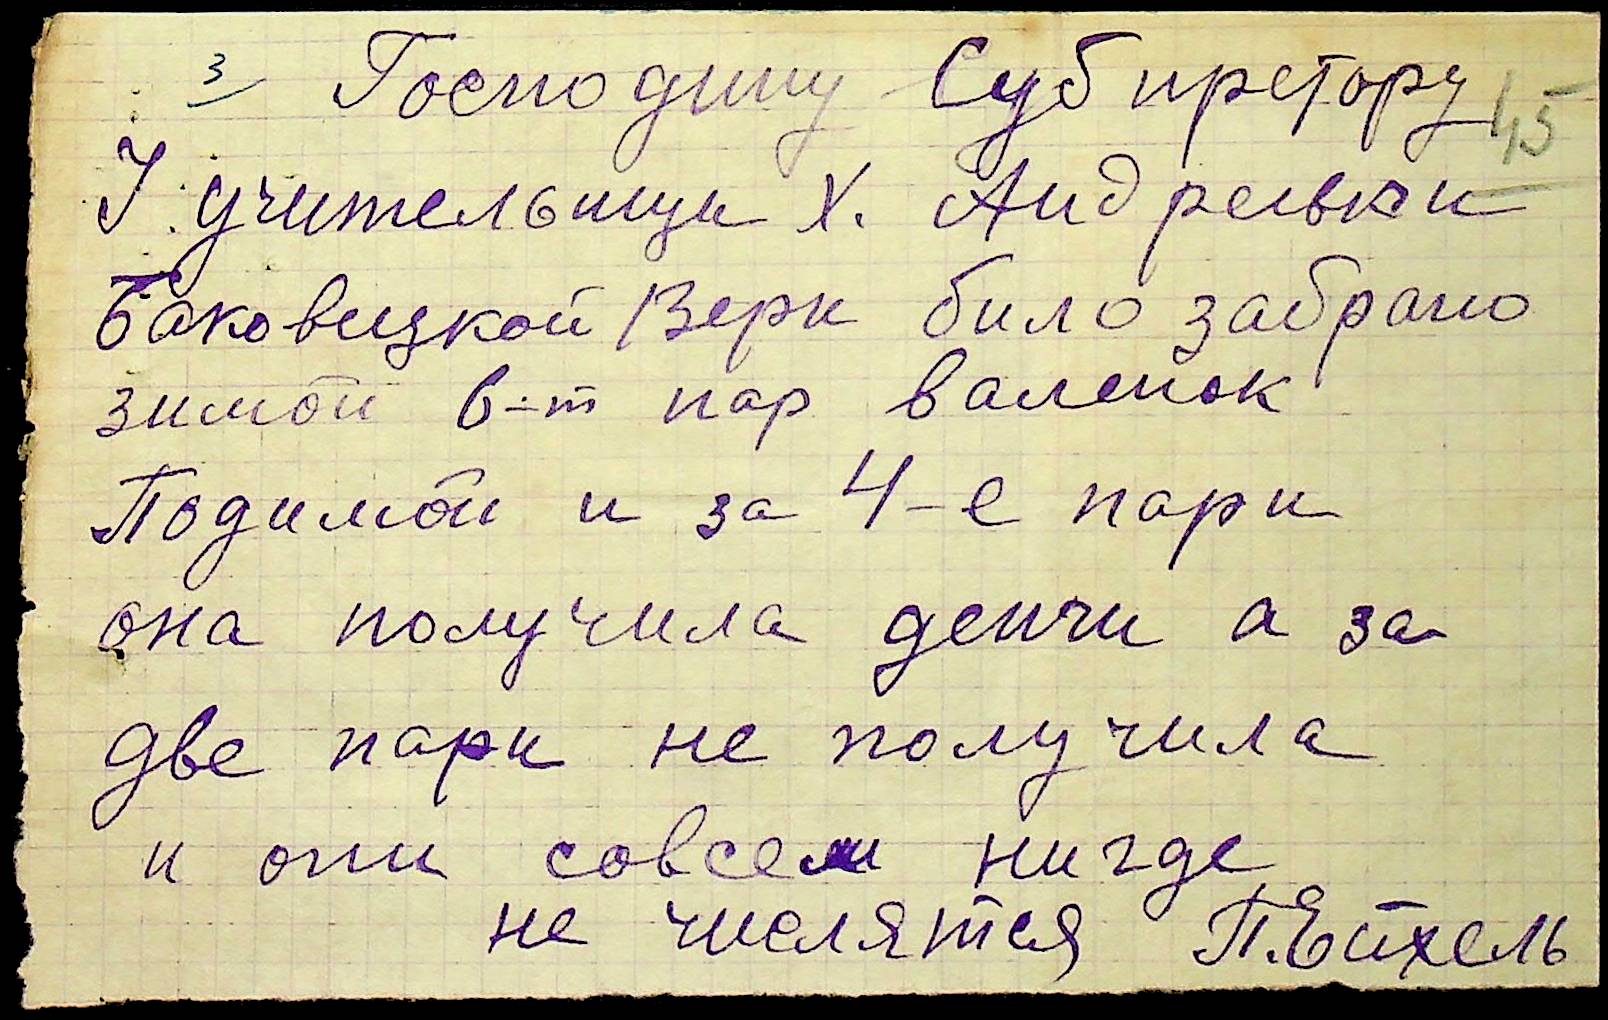 3 Господину Субпретору
45
У учительници Х. Андреевки
Баковицкой Вери било забрано
зимой 6-т пар валенок
Подимой и за 4-е пари
она получила денги а за
две пари не получила
и они совсем нигде
не числятся П. Ейхель